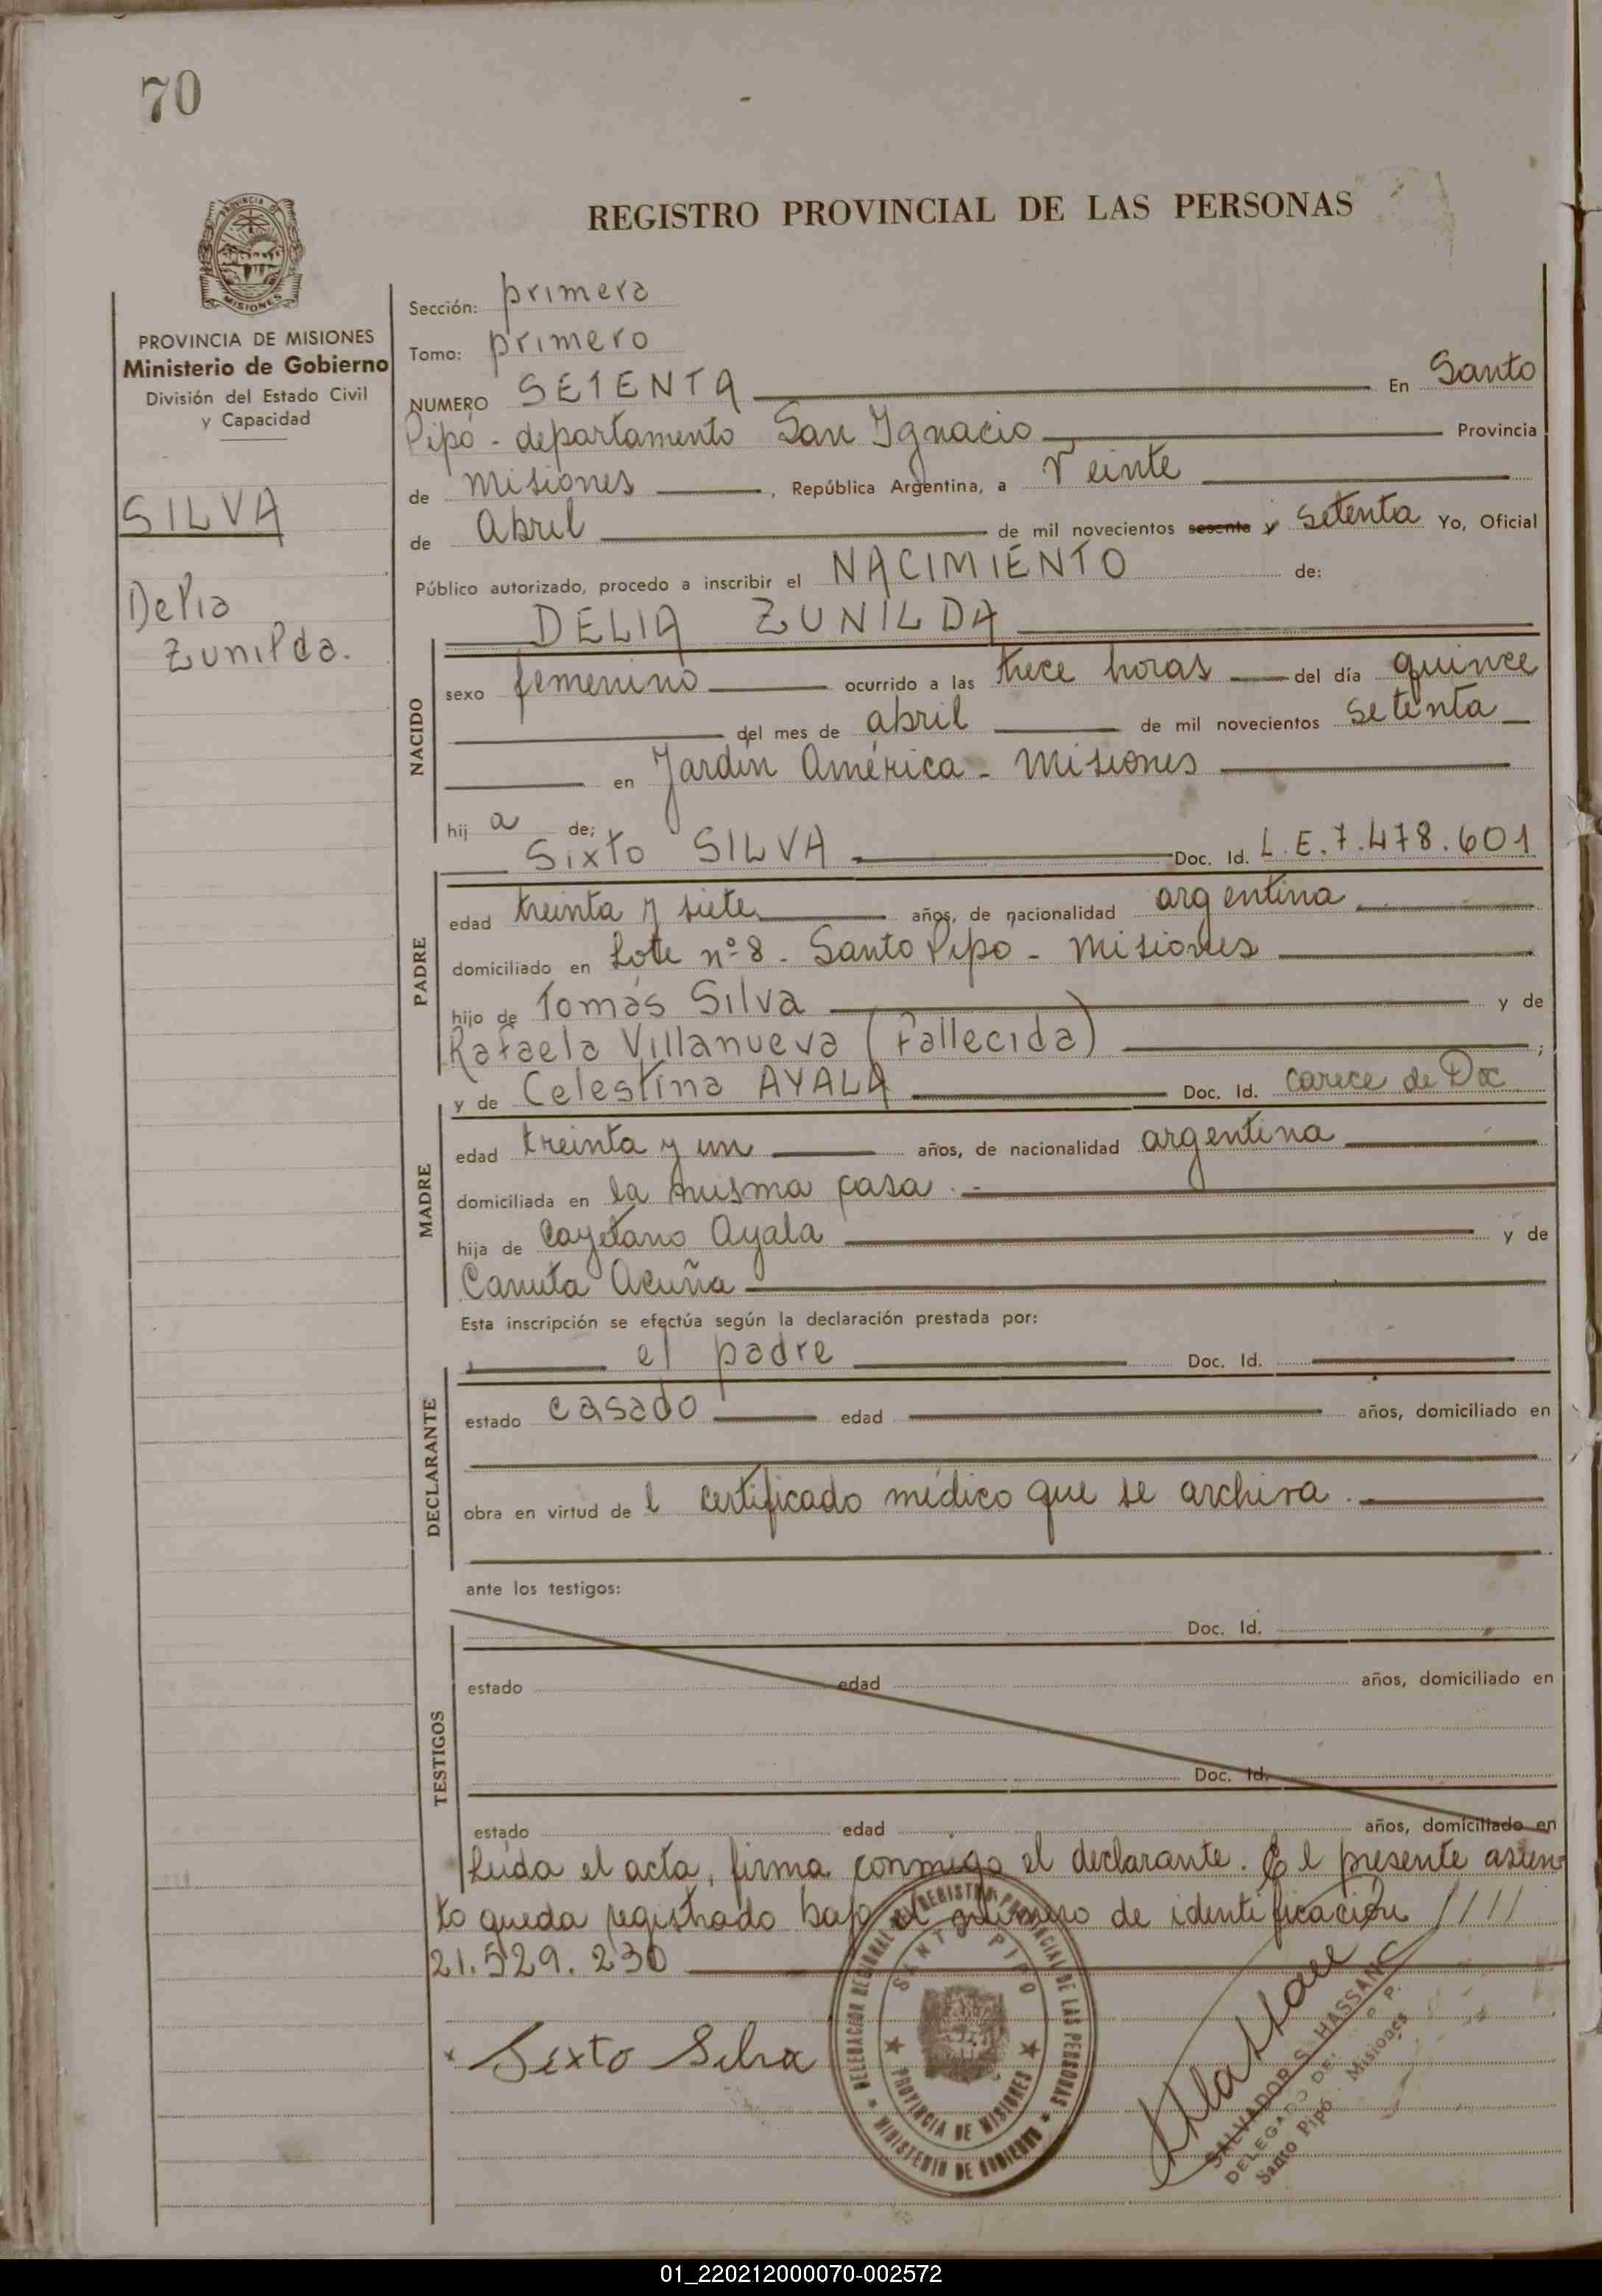 70
REGISTRO PROVINCIAL DE LAS PERSONAS
PROVINCIA DE
MISIONES
PROVINCIA DE MISIONES
Ministerio de Gobierno
División del Estado Civil
y Capacidad
SILVA
Delia
Zunilda.
Sección: primera
Tomo: primero
NUMERO SETENTA En Santo
Pipó - departamento San Ignacio Provincia
de Misiones, República Argentina, a Veinte
de Abril de mil novecientos sesenta y setenta Yo, Oficial
Público autorizado, procedo a inscribir el NACIMIENTO de:
DELIA ZUNILDA
NACIDO
sexo femenino ocurrido a las trece horas del día quince
del mes de abril de mil novecientos setenta
en Jardín América - Misiones
hij a de;
Sixto SILVA Doc. Id. L.E. 7.478.601
PADRE
edad treinta y siete años, de nacionalidad argentina
domiciliado en Lote nº 8 - Santo Pipó - Misiones
hijo de Tomás Silva y de
Rafaela Villanueva (Fallecida) ;
y de Celestina AYALA Doc. Id. carece de Doc
MADRE
edad treinta y un años, de nacionalidad argentina
domiciliada en la misma casa . -
hija de Cayetano Ayala y de
Canuta Acuña
Esta inscripción se efectúa según la declaración prestada por:
el padre Doc. Id.
DECLARANTE
estado casado edad años, domiciliado en
obra en virtud de l certificado médico que se archiva .
ante los testigos:
TESTIGOS
Doc. Id.
estado edad años, domiciliado en
Doc. Id.
estado edad años, domiciliado en
Leída el acta, firma conmigo el declarante. El presente asien
to queda registrado bajo el número de identificación ////
21.529.230
Sixto Silva
REGISTRO PROVINCIAL DE LAS PERSONAS
SANTO PIPO
PROVINCIA DE MISIONES
MINISTERIO DE GOBIERNO
SALVADOR S. HASSAN
DELEGADO DE
Santo Pipó - Misiones
01_220212000070-002572